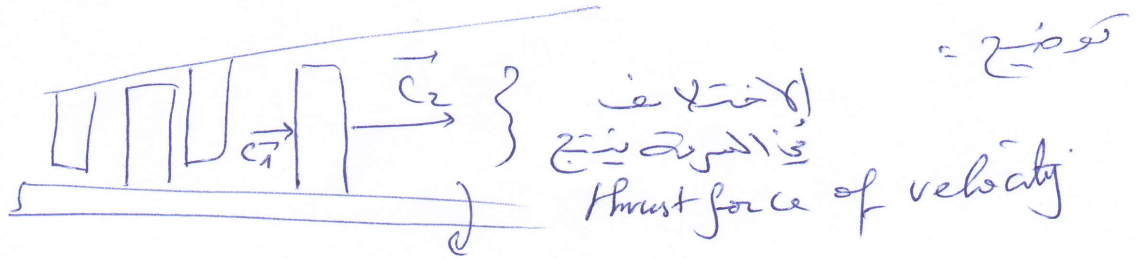 توضيح =
C1
C2
الاختلاف
في السرعة ينتج
thrust force of velocity